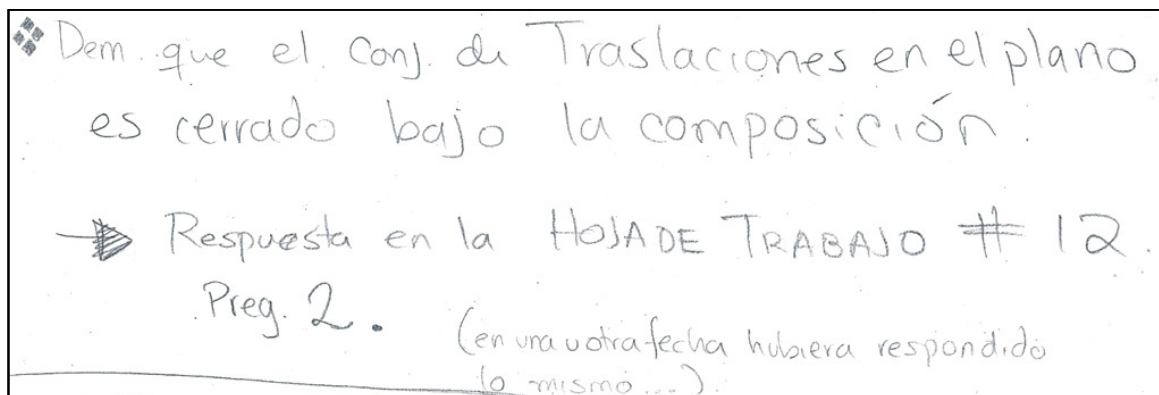 ❖ Dem. que el conj. de Traslaciones en el plano
es cerrado bajo la composición.
→ Respuesta en la HOJA DE TRABAJO # 12.
Preg. 2.
(en una u otra fecha hubiera respondido
lo mismo...).